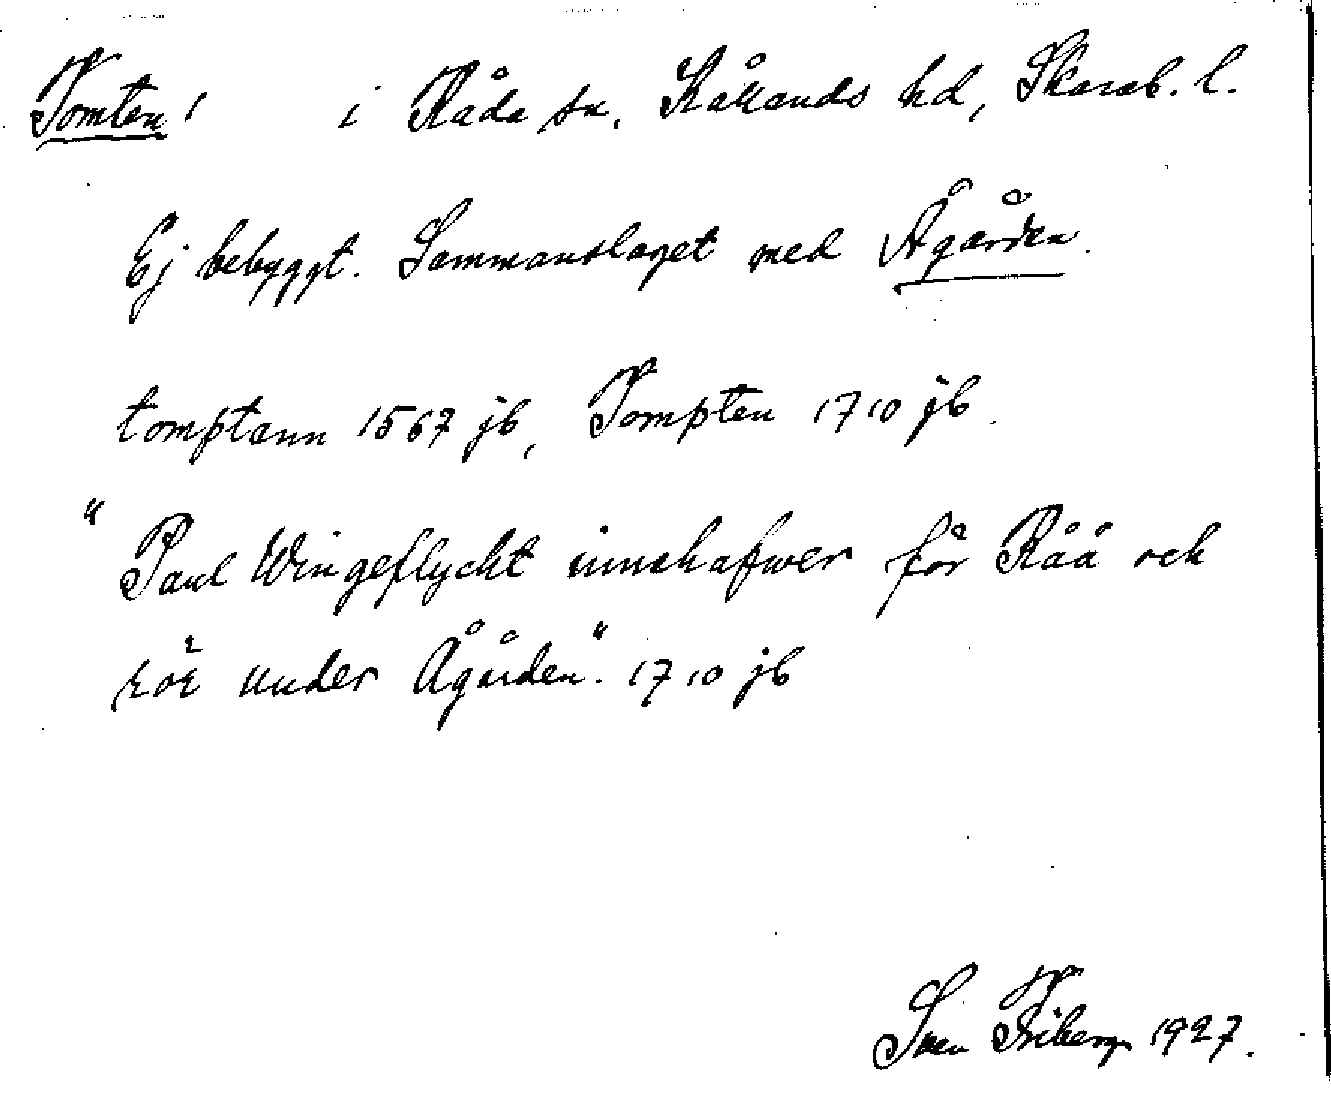 Tomten! i Råda sn, Kållands hd, Skarab. l.
Ej bebyggt. Sammanslaget med Ågården.
tomptenn 1567 jb, Tompten 1710 jb.
"Paul Wingeflycht innehafwer för Råå och
rör under Ågården". 1710 jb
Sven Friberg 1927.